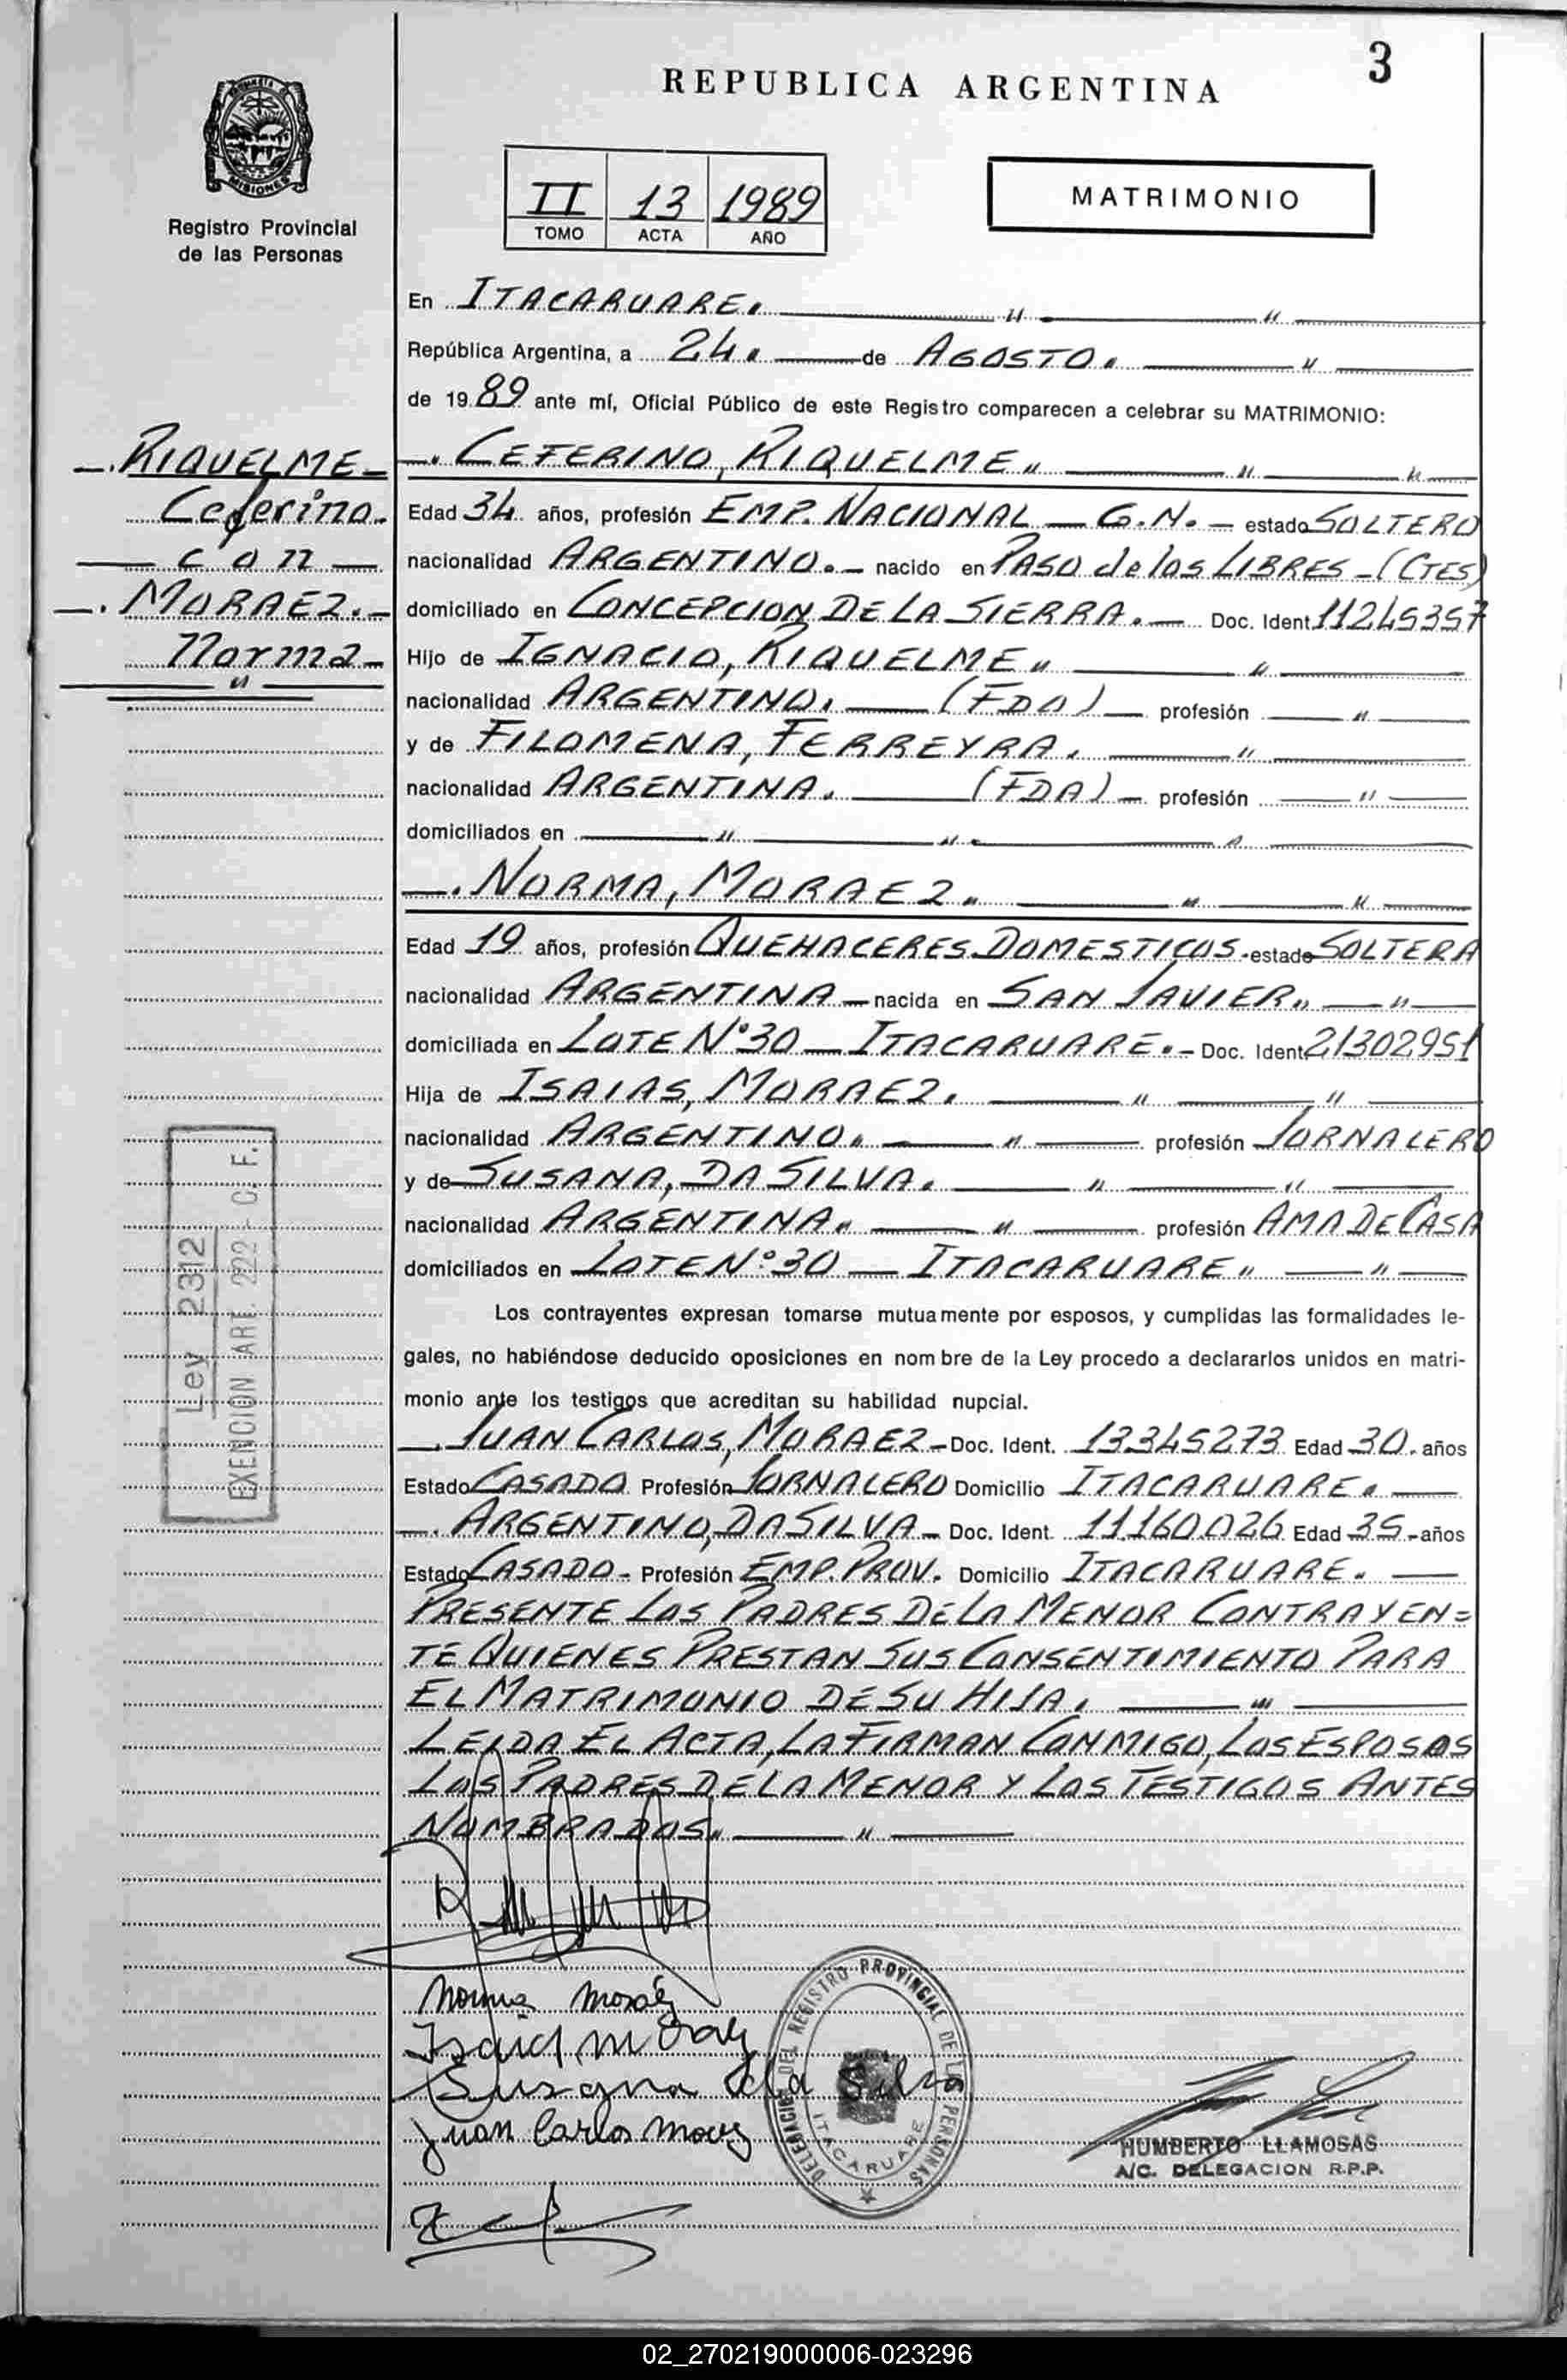 3
REPUBLICA ARGENTINA
MISIONES
Registro Provincial
de las Personas
II 13 1989
TOMO ACTA AÑO
MATRIMONIO
En ITACARUARE.
República Argentina, a 24. de AGOSTO.
de 1989 ante mí, Oficial Público de este Registro comparecen a celebrar su MATRIMONIO:
RIQUELME
Ceferino
con
MORAEZ.
Norma
CEFERINO, RIQUELME
Edad 34 años, profesión EMP. NACIONAL — G.N. — estado SOLTERO
nacionalidad ARGENTINO. — nacido en PASO de los LIBRES - (CTES)
domiciliado en CONCEPCION DE LA SIERRA. — Doc. Ident. 11245357
Hijo de IGNACIO, RIQUELME
nacionalidad ARGENTINO. — (FDO) — profesión — " —
y de FILOMENA, FERREYRA.
nacionalidad ARGENTINA. — (FDA) — profesión — " —
domiciliados en — " —
NORMA, MORAEZ
Edad 19 años, profesión QUEHACERES DOMESTICOS. estado SOLTERA
nacionalidad ARGENTINA — nacida en SAN JAVIER
domiciliada en LOTE N°30 — ITACARUARE. — Doc. Ident. 21302951
Hija de ISAIAS, MORAEZ.
nacionalidad ARGENTINO. — " — profesión JORNALERO
y de SUSANA, DA SILVA.
nacionalidad ARGENTINA — " — profesión AMA DE CASA
domiciliados en LOTE N°30 — ITACARUARE
Los contrayentes expresan tomarse mutuamente por esposos, y cumplidas las formalidades le-
gales, no habiéndose deducido oposiciones en nombre de la Ley procedo a declararlos unidos en matri-
monio ante los testigos que acreditan su habilidad nupcial.
JUAN CARLOS, MORAEZ - Doc. Ident. 13345273 Edad 30. años
Estado CASADO Profesión JORNALERO Domicilio ITACARUARE.
ARGENTINO, DA SILVA - Doc. Ident. 11160026 Edad 35 - años
Estado CASADO - Profesión EMP. PROV. Domicilio ITACARUARE.
PRESENTE LOS PADRES DE LA MENOR CONTRAYEN=
TE QUIENES PRESTAN SUS CONSENTIMIENTO PARA
EL MATRIMONIO DE SU HIJA.
LEIDA EL ACTA, LA FIRMAN CONMIGO, LOS ESPOSOS
LOS PADRES DE LA MENOR Y LOS TESTIGOS ANTES
NOMBRADOS
Ley 2312
EXENCION ART. 222 - C. F.
Norma Moraéz
Susana da Silva
Juan Carlos Moraez
DELEGACION DEL REGISTRO PROVINCIAL DE LAS PERSONAS
ITACARUARE
HUMBERTO LLAMOSAS
A/C. DELEGACION R.P.P.
02_270219000006-023296